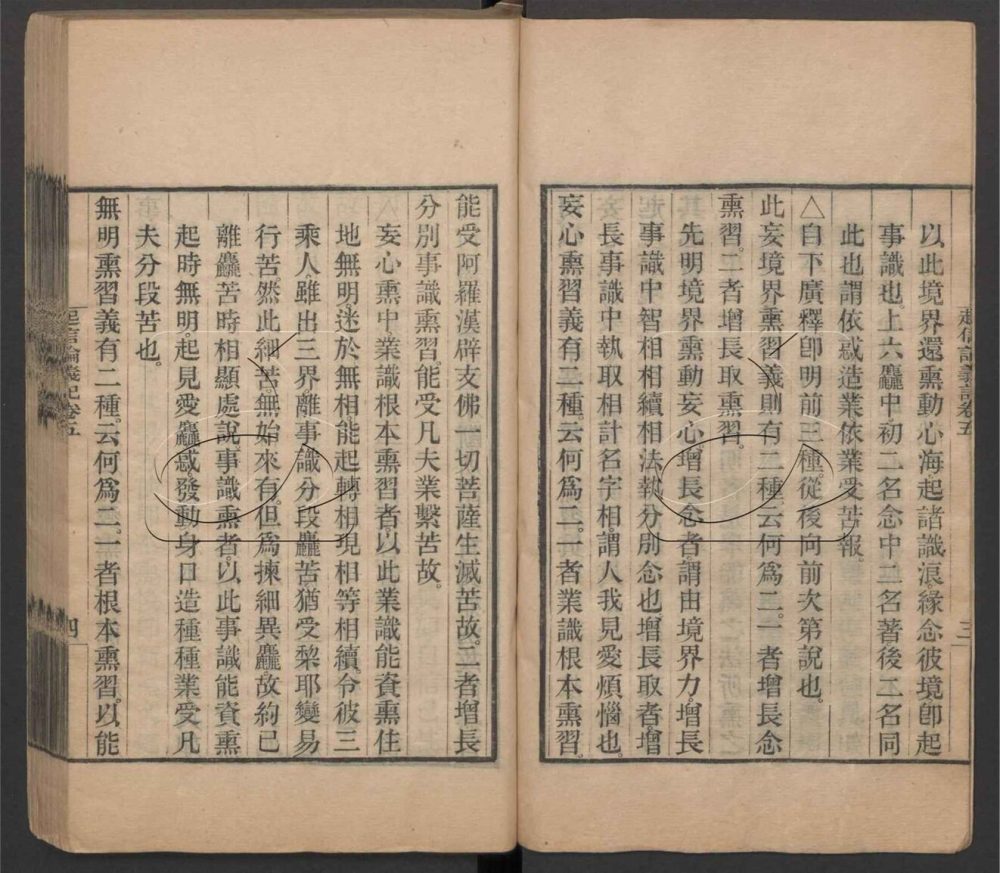 以此境界還熏動心海起諸識浪緣念彼境卽起
事識也上六麤中初二名念中二名著後二名同
此也謂依惑造業依業受苦報
△自下廣釋卽明前三種從後向前次第說也。
此妄境界熏習義則有二種云何爲二。一者增長念
熏習。二者增長取熏習。
先明境界熏動妄心增長念者謂由境界力增長
事識中智相相續相法執分別念也增長取者增
長事識中執取相計名字相謂人我見愛煩惱也。
妄心熏習義有二種。云何爲二。一者業識根本熏習。
起信論義記卷五
三
能受阿羅漢辟支佛一切菩薩生滅苦故。二者增長
分別事識熏習能受凡夫業繫苦故。
妄心熏中業識根本熏習者以此業識能資熏住
地無明迷於無相能起轉相現相等相續令彼三
乘人雖出三界離事識分段麤苦猶受棃耶變易
行苦。然此細苦無始來有但爲揀細異麤故約已
離麤苦時相顯處說事識熏者以此事識能資熏
起時無明起見愛麤惑發動身口造種種業受凡
夫分段苦也。
無明熏習義有二種。云何爲二。一者根本熏習以能
起信論義記卷五
四